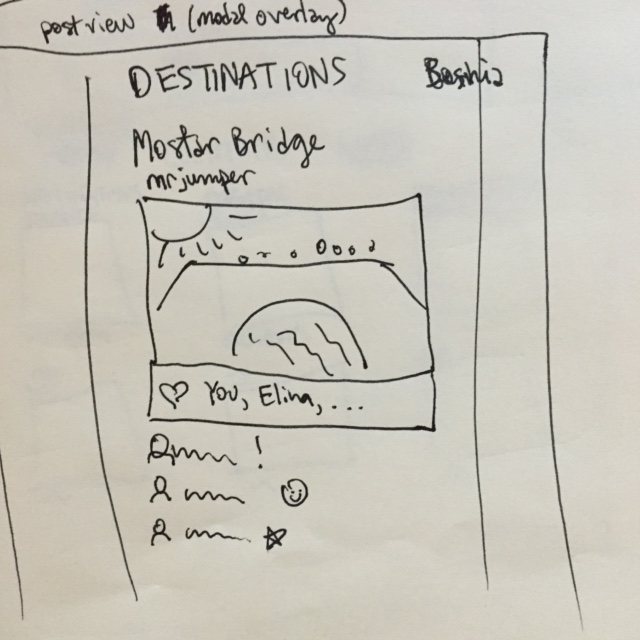 post view (modal overlay)
DESTINATIONS Bosnia
Mostar Bridge
mrjumper
You, Elina, ...
!